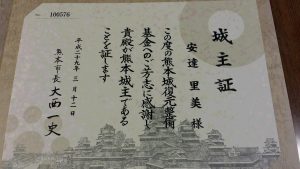 100576
城主証
安達 里美 様
この度の熊本城復元整備
基金へのご芳志に感謝し
貴殿が熊本城主である
ことを証します
平成二十九年 三月十二日
熊本市長 大西一史